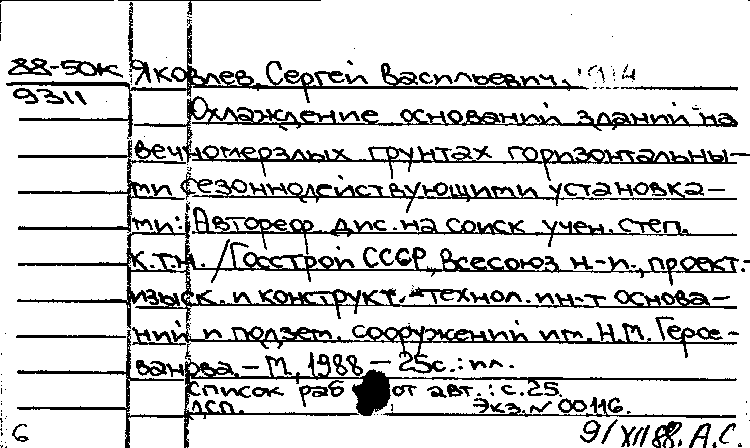 88-50к Яковлев, Сергей Васильевич,
9311
Охлаждение оснований зданий на
вечномерзлых грунтах горизонтальны-
ми сезоннодействующими установка-
ми: Автореф. дис. на соиск. учен. степ.
к.т.н. /Госстрой СССР, Всесоюз. н.-и., проект.-
изыск. и конструкт.-технол. ин-т основа-
ний и подзем. сооружений им. Н.М. Герсе-
ванова. - М., 1988 - 25с.: ил.
Список работ авт.: с.25.
ДСП. Экз. N 00116.
6 9/XII 88. А.С.